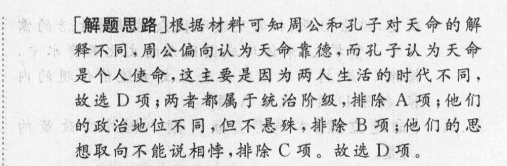 [解题思路]根据材料可知周公和孔子对天命的解
释不同,周公偏向认为天命靠德,而孔子认为天命
是个人使命,这主要是因为两人生活的时代不同,
故选 D 项;两者都属于统治阶级,排除 A 项;他们
的政治地位不同,但不悬殊,排除 B 项;他们的思
想取向不能说相悖,排除 C 项。故选 D 项。